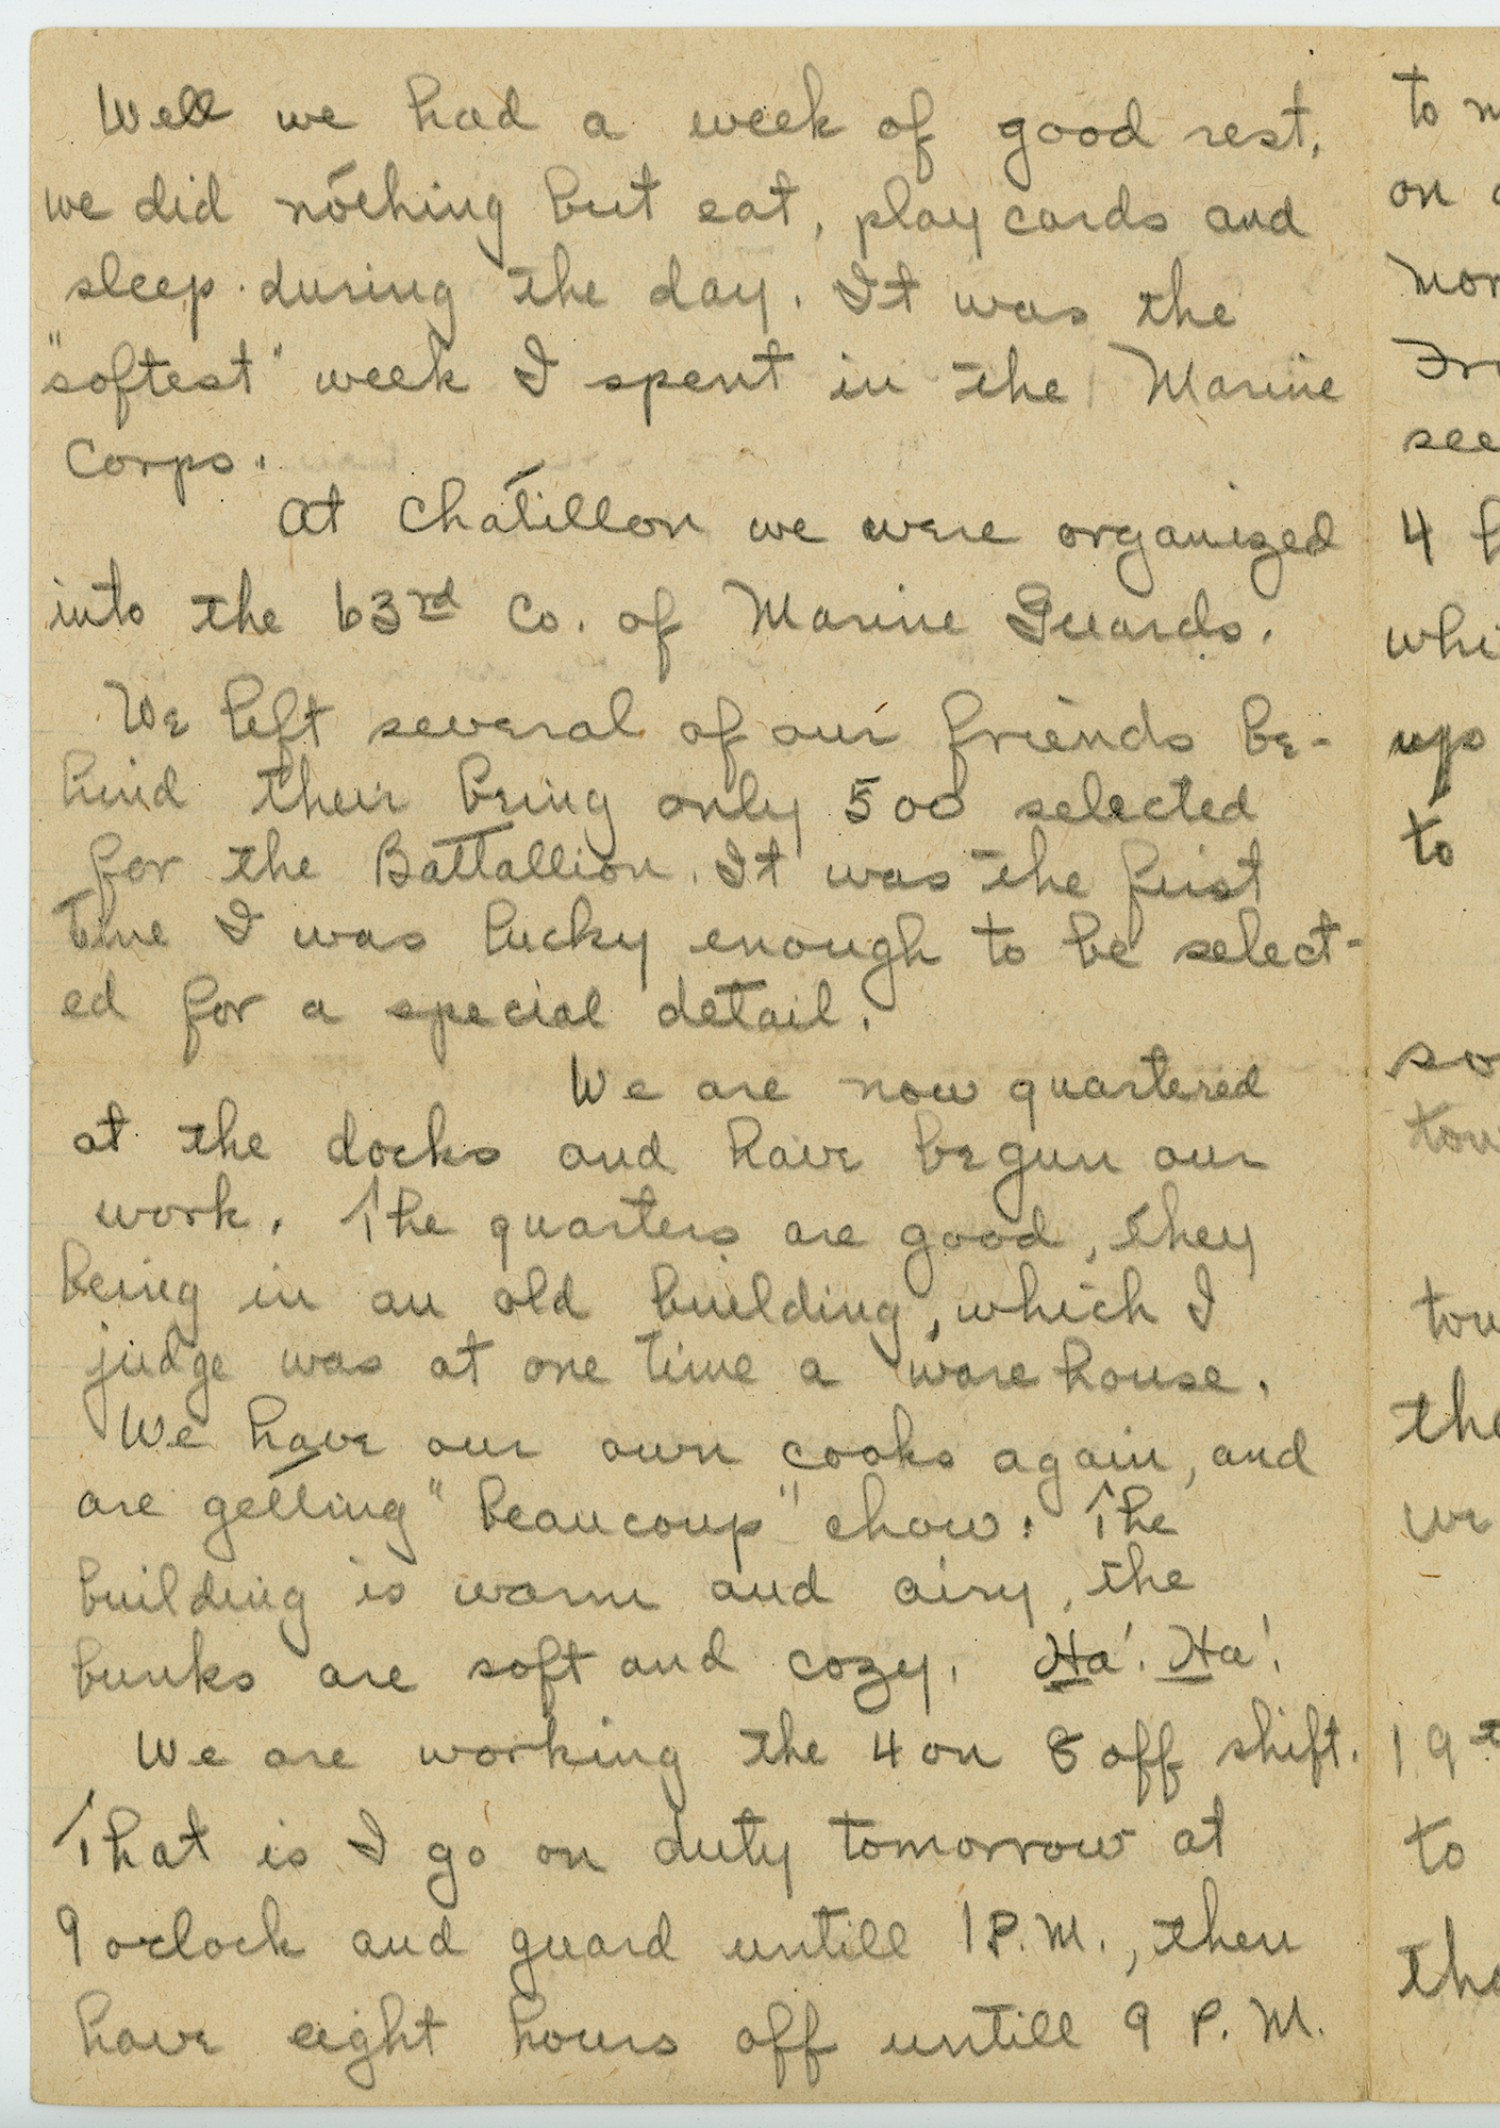 Well we had a week of good rest,
we did nothing but eat, play cards and
sleep during the day. It was the
"softest" week I spent in the Marine
Corps.
At Chatillon we were organized
into the 63rd Co. of Marine Guards.
We left several of our friends be-
hind their being only 500 selected
for the Battallion. It was the first
time I was lucky enough to be select-
ed for a special detail.
We are now quartered
at the docks and have begun our
work. The quarters are good, they
being in an old building, which I
judge was at one time a warehouse.
We have our own cooks again, and
are getting "beaucoup" chow. The
building is warm and airy, the
bunks are soft and cozy. Ha! Ha!
We are working the 4 on 8 off shift.
That is I go on duty tomorrow at
9 oclock and guard untill 1 P.M., then
have eight hours off untill 9 P.M.
to
on
see
4
ups
to
so
the
we
19
to